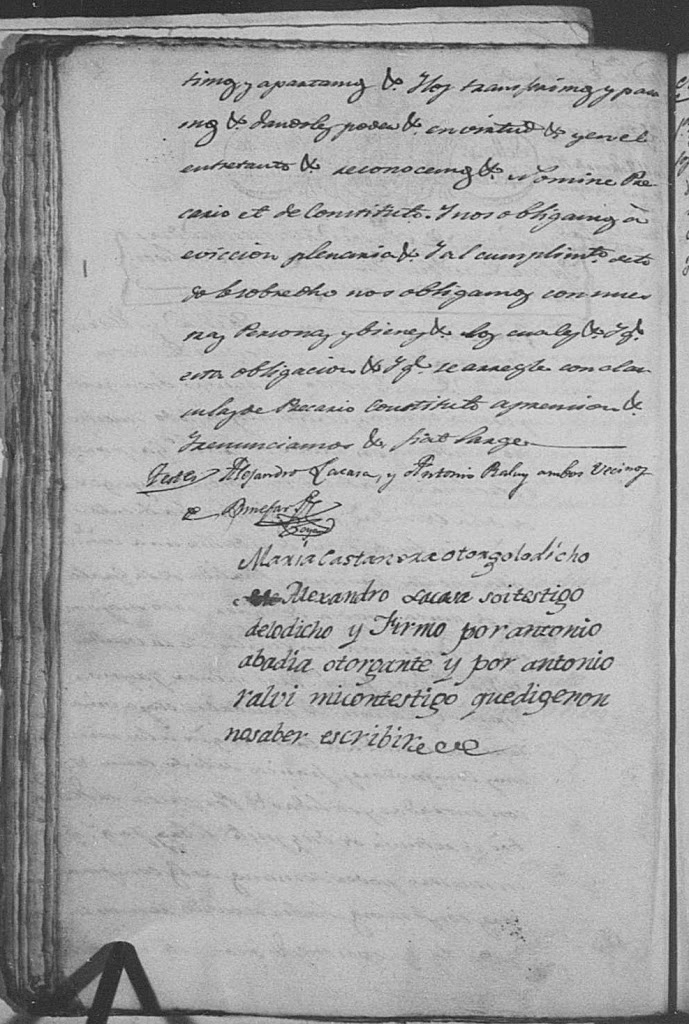 timos y apartamos &c. Y los transferimos y pasa
mos &c. dandoles poder &c. en virtud &c. y en el
entretanto &c. reconocemos &c. Nomine Pre
cario et de Constituto. Y nos obligamos à
eviccion plenaria &c. Y al cumplimto. de to
do lo sobredho nos obligamos con nues
ras Personas y bienes &c. los cuales &c. Y q.
esta obligacion &c. Y q. se arregle con clau
sulas de Precario Constituto aprension &c.
Y renunciamos &c. fiat large
Testes Alejandro Lacasa, y Antonio Raluy ambos Vecinos
Binefar
Maria Castan otorgo lo dicho
Alexandro Lacasa soi testigo
delodicho y Firmo por antonio
abadia otorgante y por antonio
ralvi micontestigo quedigeron
nosaber escribir